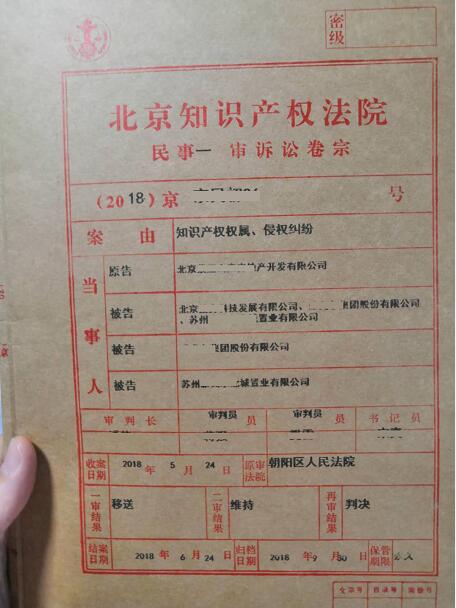 密级
北京知识产权法院
民事一审诉讼卷宗
(2018)京 号
案由 知识产权权属、侵权纠纷
当事人
原告 北京 产开发有限公司
被告 北京 科技发展有限公司、 集团股份有限公司
、苏州 置业有限公司
被告 集团股份有限公司
被告 苏州 城置业有限公司
审判长 审判员 员 审判员 员 书记员
收案日期 2018年5月24日 原审法院 朝阳区人民法院
一审结果 移送 二审结果 维持 再审结果 判决
结案日期 2018年6月24日 归档日期 2018年9月30日 保管期限
全宗号 目录号 案卷号